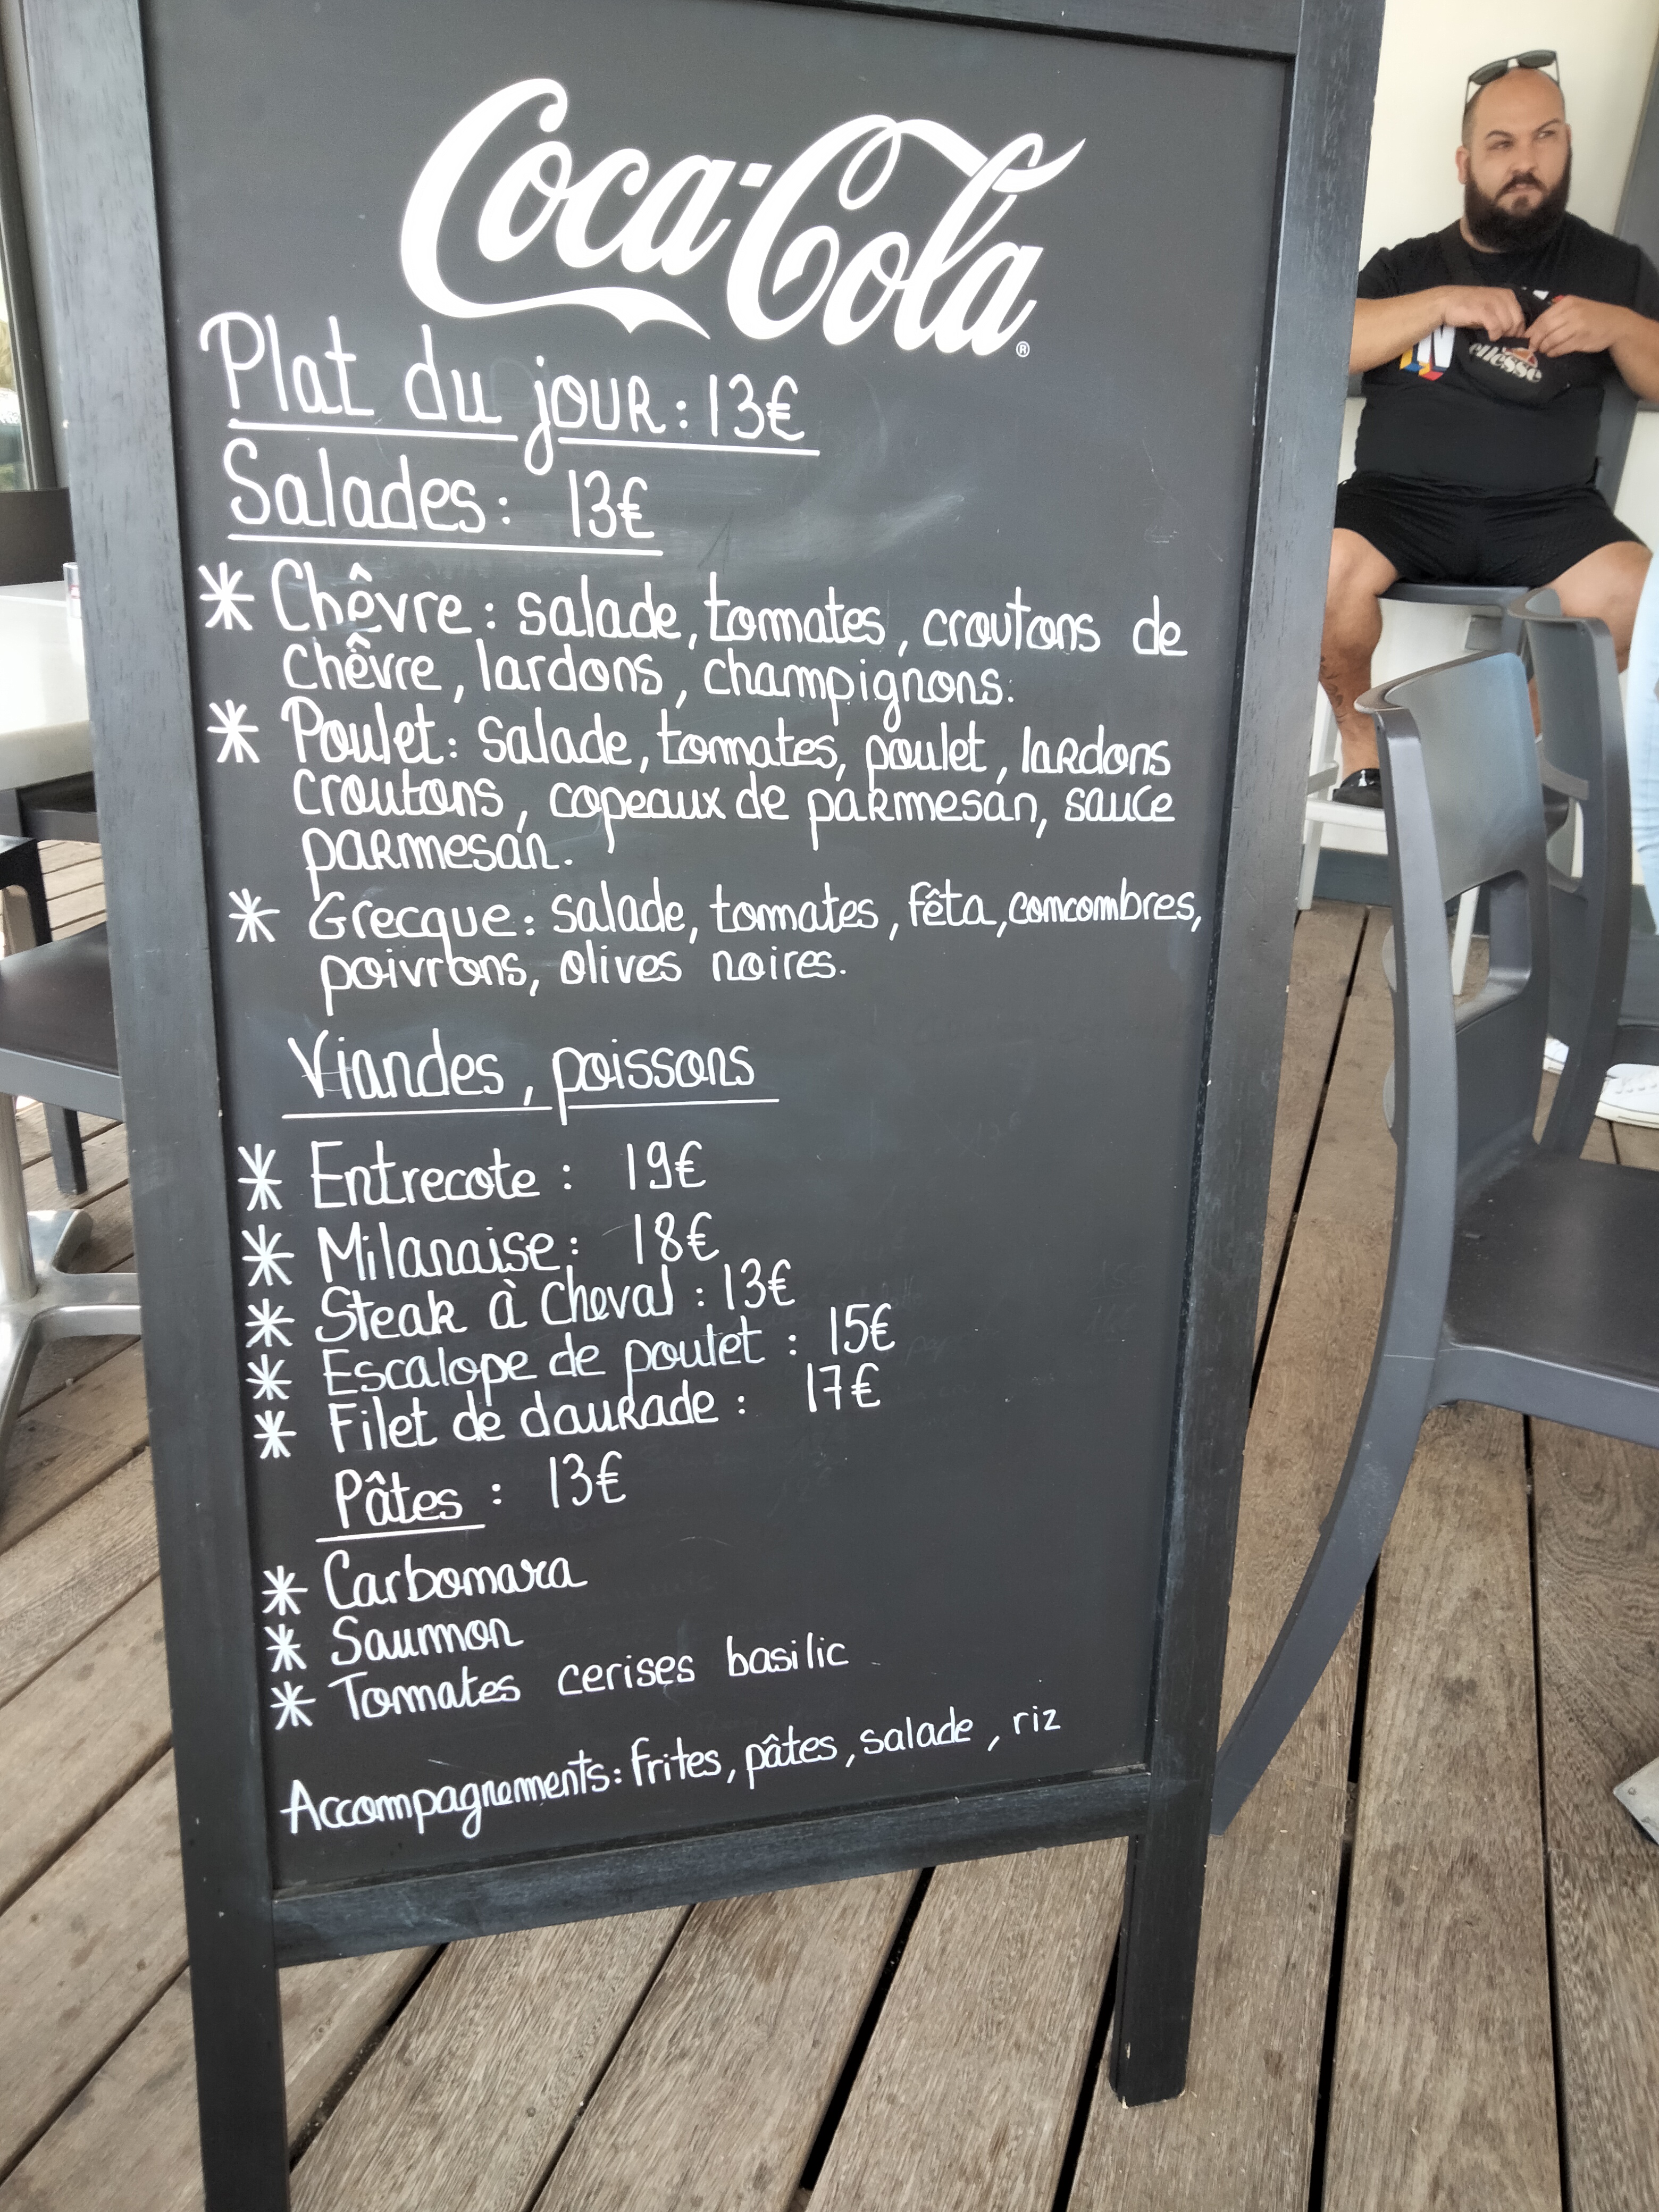 Coca-Cola®
Plat du jour : 13€
Salades : 13€
* Chêvre : salade, tomates, croutons de
chêvre, lardons, champignons.
* Poulet : salade, tomates, poulet, lardons
croutons, copeaux de parmesan, sauce
parmesan.
* Grecque : salade, tomates, fêta, concombres,
poivrons, olives noires.
Viandes, poissons
* Entrecote : 19€
* Milanaise : 18€
* Steak à cheval : 13€
* Escalope de poulet : 15€
* Filet de daurade : 17€
Pâtes : 13€
* Carbonara
* Saumon
* Tomates cerises basilic
Accompagnements : frites, pâtes, salade, riz
ellesse